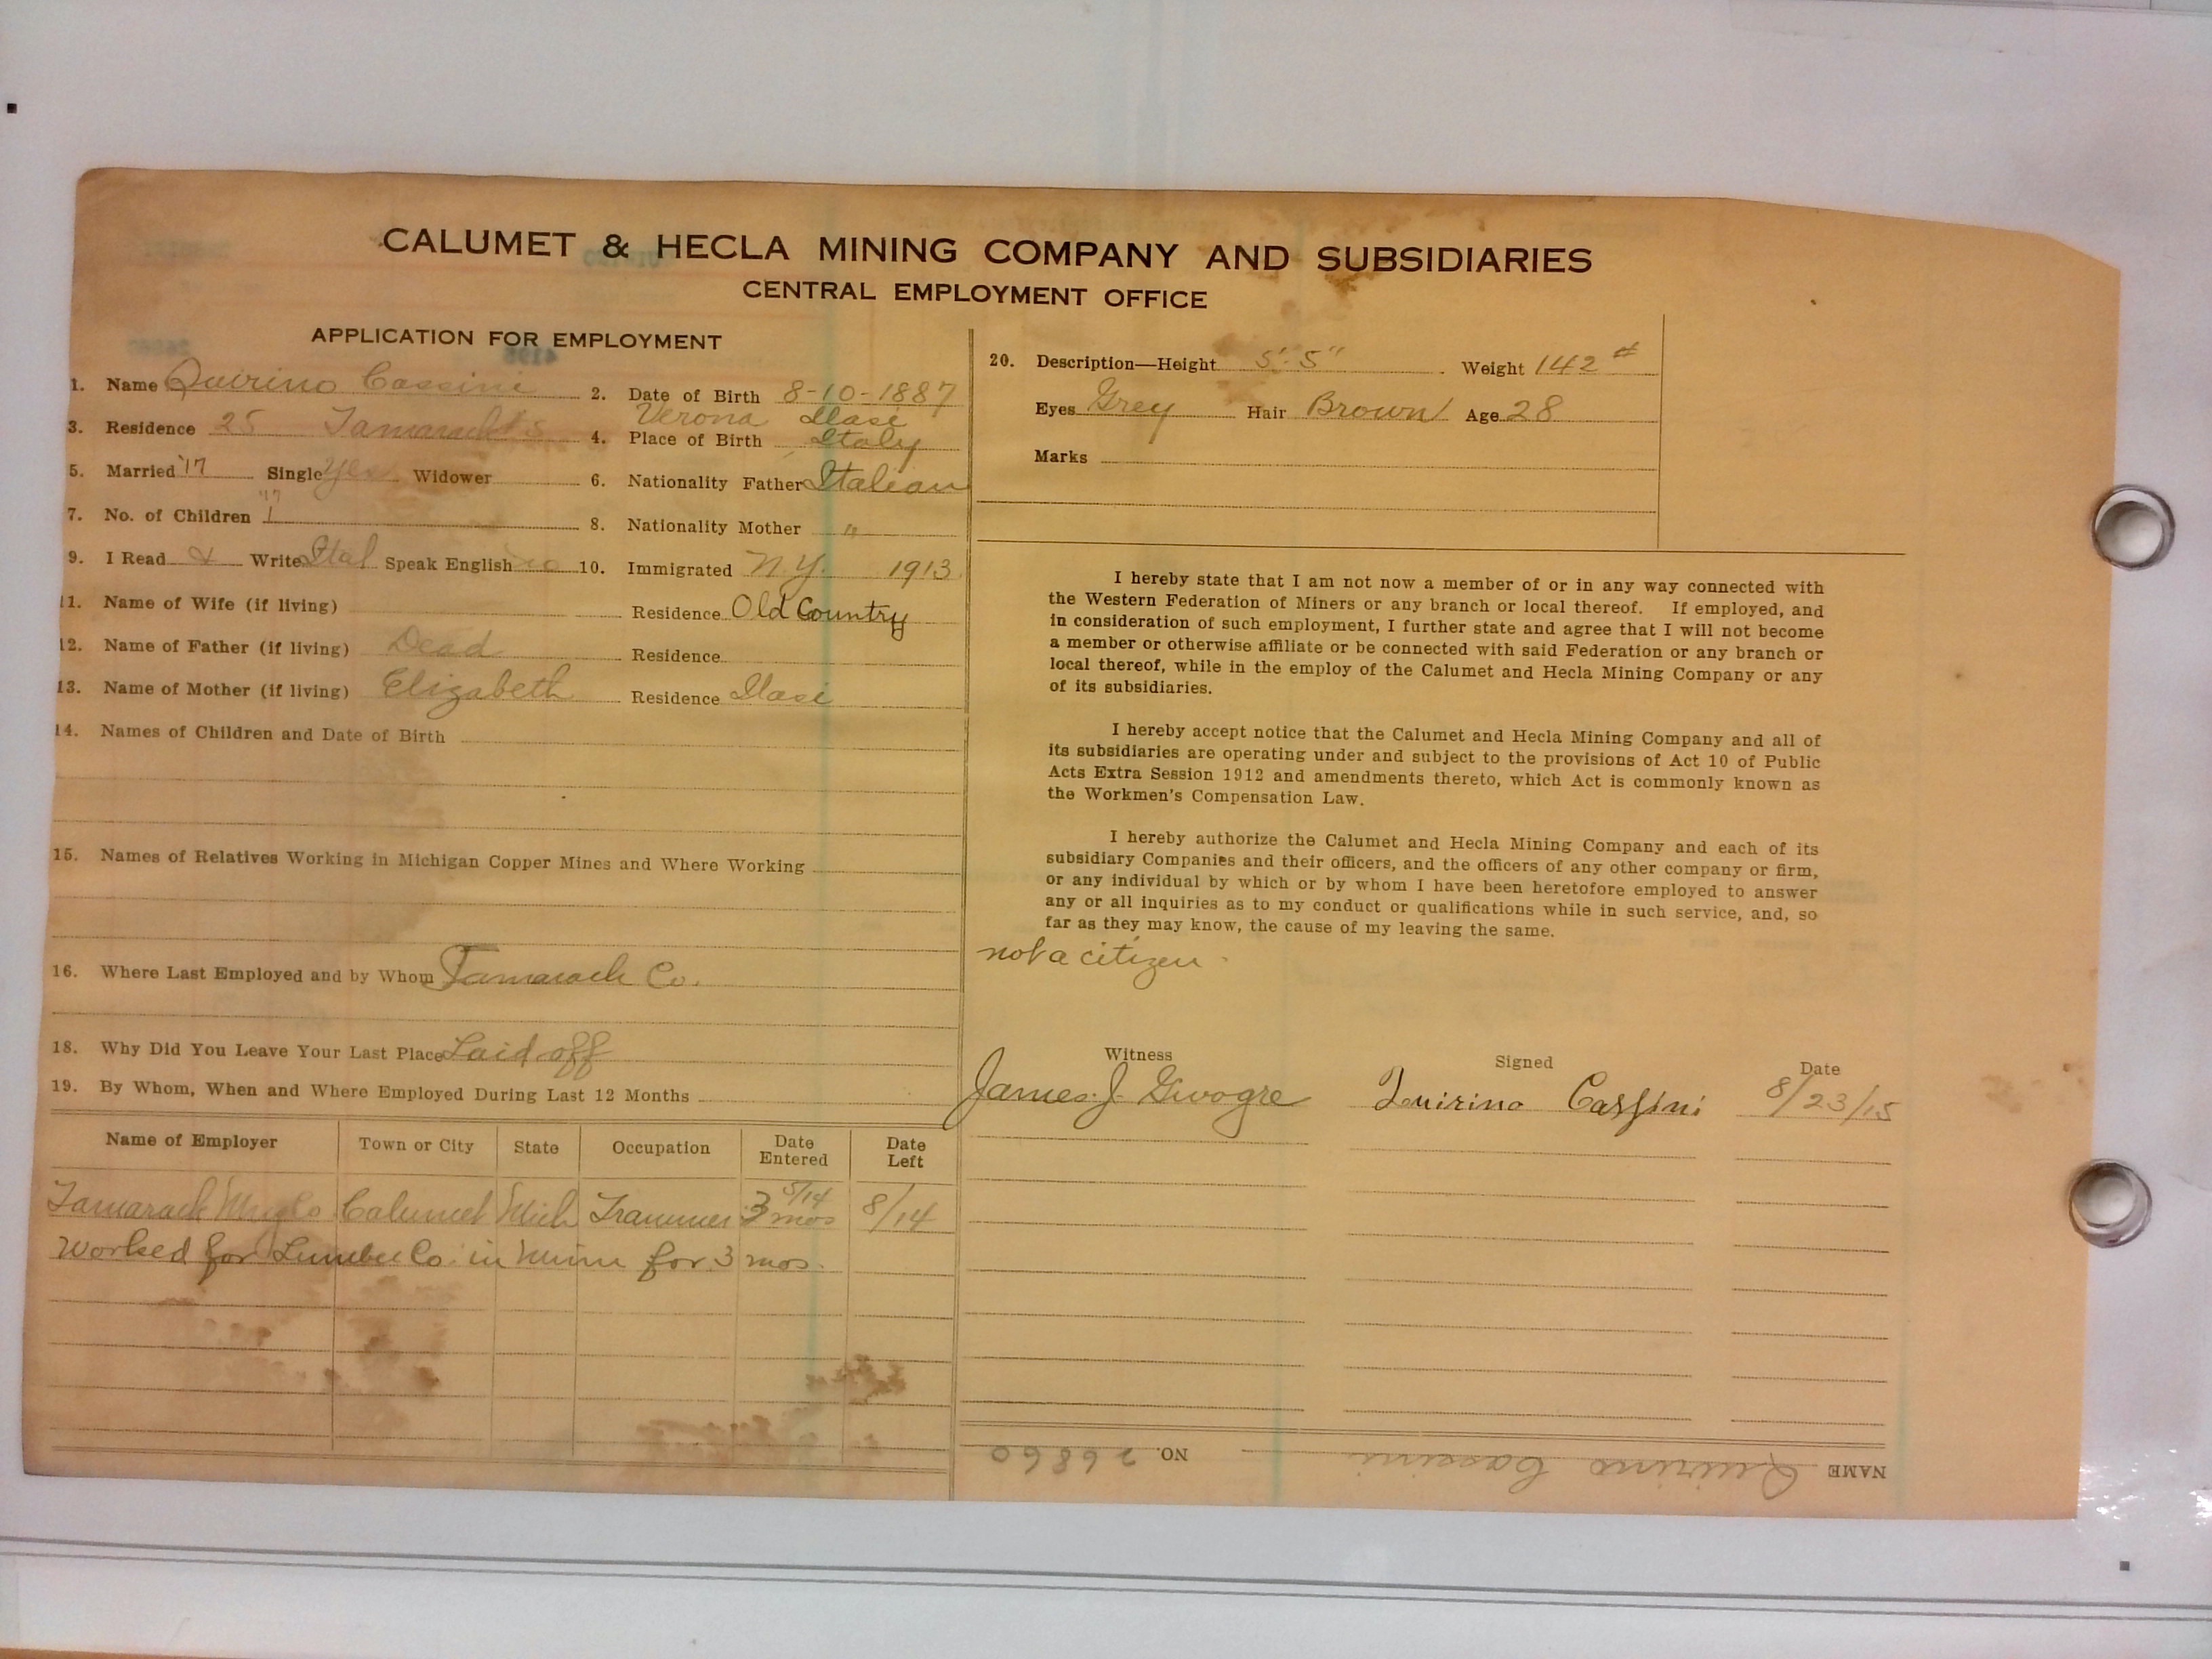 CALUMET & HECLA MINING COMPANY AND SUBSIDIARIES
CENTRAL EMPLOYMENT OFFICE
APPLICATION FOR EMPLOYMENT
1. Name Quirino Cassini 2. Date of Birth 8-10-1887
Verona Masi
3. Residence 25 Tamarack 4. Place of Birth Italy
5. Married '17 Single Yes Widower 6. Nationality Father Italian
'17
7. No. of Children 1 8. Nationality Mother "
9. I Read & Write Ital Speak English no 10. Immigrated N.Y. 1913
11. Name of Wife (if living) Residence Old Country
12. Name of Father (if living) Dead Residence
13. Name of Mother (if living) Elizabeth Residence Masi
14. Names of Children and Date of Birth
15. Names of Relatives Working in Michigan Copper Mines and Where Working
16. Where Last Employed and by Whom Tamarack Co.
18. Why Did You Leave Your Last Place Laid off
19. By Whom, When and Where Employed During Last 12 Months
Name of Employer Town or City State Occupation Date Entered Date Left
Tamarack Mng Co. Calumet Mich Trammer 5/14 3 mos 8/14
Worked for Lumber Co. in Minn for 3 mos.
20. Description—Height 5'-5" Weight 142 #
Eyes Grey Hair Brown Age 28
Marks
I hereby state that I am not now a member of or in any way connected with
the Western Federation of Miners or any branch or local thereof. If employed, and
in consideration of such employment, I further state and agree that I will not become
a member or otherwise affiliate or be connected with said Federation or any branch or
local thereof, while in the employ of the Calumet and Hecla Mining Company or any
of its subsidiaries.
I hereby accept notice that the Calumet and Hecla Mining Company and all of
its subsidiaries are operating under and subject to the provisions of Act 10 of Public
Acts Extra Session 1912 and amendments thereto, which Act is commonly known as
the Workmen's Compensation Law.
I hereby authorize the Calumet and Hecla Mining Company and each of its
subsidiary Companies and their officers, and the officers of any other company or firm,
or any individual by which or by whom I have been heretofore employed to answer
any or all inquiries as to my conduct or qualifications while in such service, and, so
far as they may know, the cause of my leaving the same.
not a citizen.
Witness Signed Date
James J. Quirino Cassini 8/23/15
NAME Quirino Cassini NO. 26860